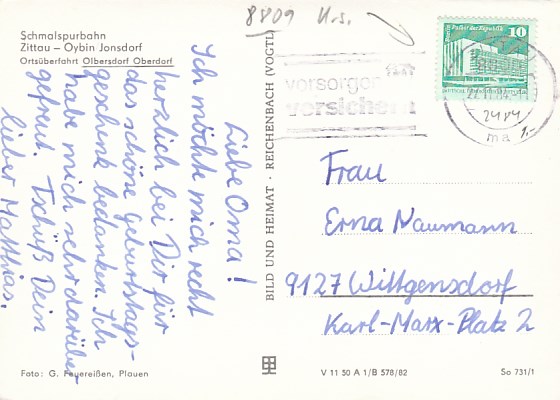 8809 U.s.
Schmalspurbahn
Zittau – Oybin Jonsdorf
Ortsüberfahrt Olbersdorf Oberdorf
Liebe Oma!
Ich möchte mich recht
herzlich bei Dir für
das schöne geburtstags-
geschenk bedanken. Ich
habe mich sehr darüber
gefreut. Tschüß Dein
lieber Matthias.
BILD UND HEIMAT · REICHENBACH (VOGTL)
vorsorgen
versichern
10
2484
Frau
Erna Naumann
9127 Wittgensdorf
Karl-Marx-Platz 2
Foto: G. Feuereißen, Plauen
V 11 50 A 1/B 578/82
So 731/1